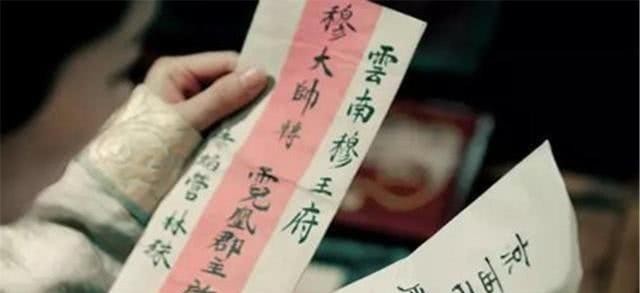 雲南穆王府
穆大帥轉霓凰郡主
焰營林殊
京西